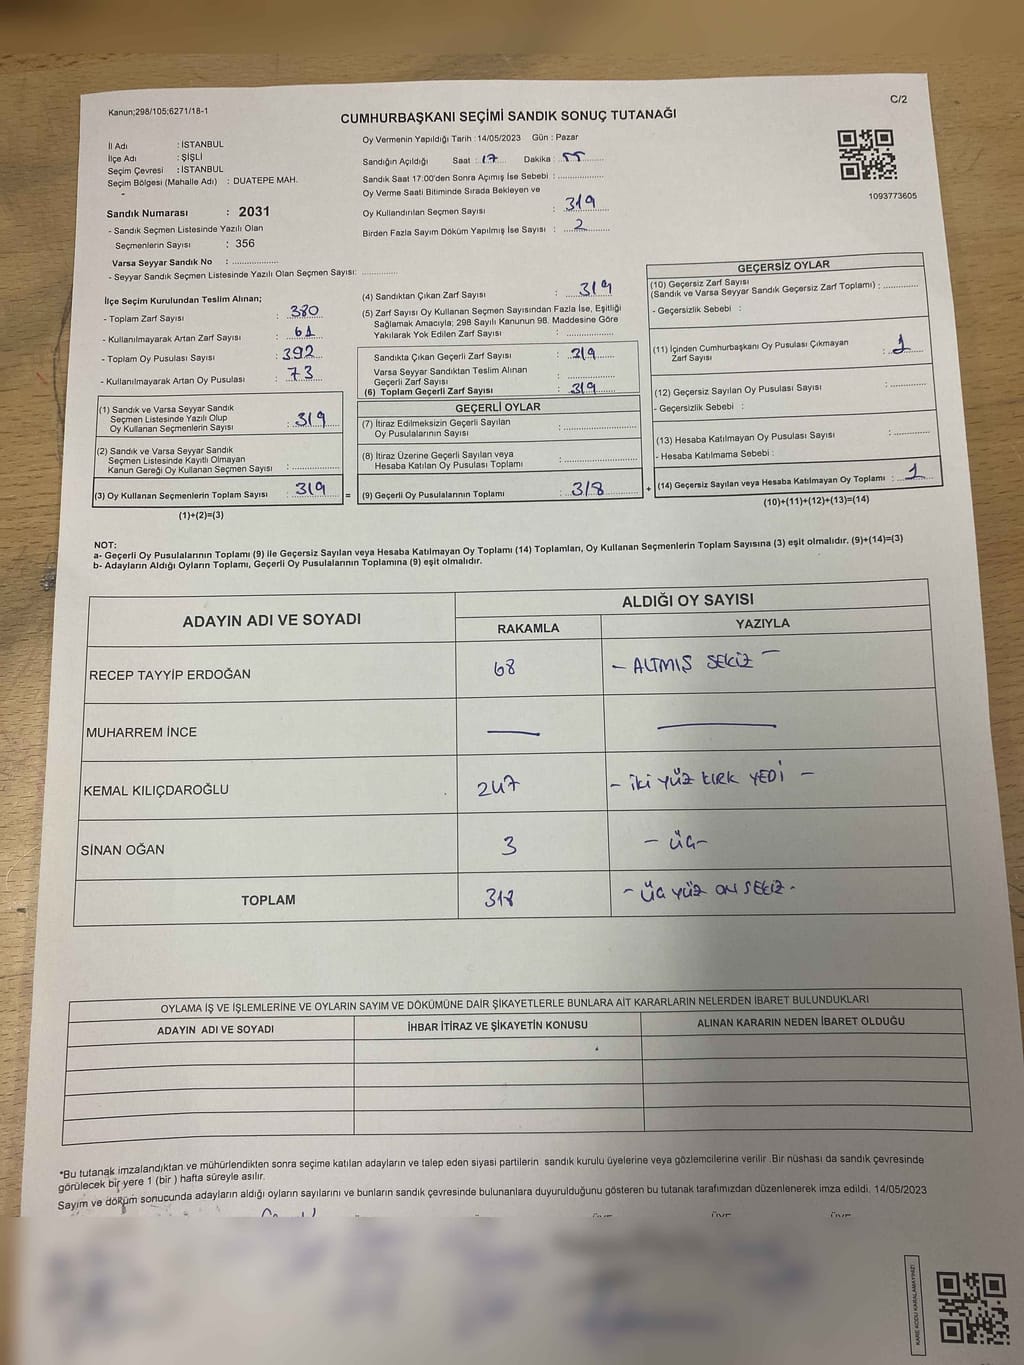 Kanun;298/105;6271/18-1
C/2
CUMHURBAŞKANI SEÇİMİ SANDIK SONUÇ TUTANAĞI
İl Adı : İSTANBUL
İlçe Adı : ŞİŞLİ
Seçim Çevresi : İSTANBUL
Seçim Bölgesi (Mahalle Adı) : DUATEPE MAH.
Sandık Numarası : 2031
- Sandık Seçmen Listesinde Yazılı Olan
Seçmenlerin Sayısı : 356
Varsa Seyyar Sandık No : ..................
- Seyyar Sandık Seçmen Listesinde Yazılı Olan Seçmen Sayısı: .............
Oy Vermenin Yapıldığı Tarih : 14/05/2023 Gün : Pazar
Sandığın Açıldığı Saat : 17 Dakika : 55
Sandık Saat 17:00'den Sonra Açılmış İse Sebebi : ..................
Oy Verme Saati Bitiminde Sırada Bekleyen ve
Oy Kullandırılan Seçmen Sayısı : 319
Birden Fazla Sayım Döküm Yapılmış İse Sayısı : 2
1093773605
İlçe Seçim Kurulundan Teslim Alınan;
- Toplam Zarf Sayısı : 380
- Kullanılmayarak Artan Zarf Sayısı : 61
- Toplam Oy Pusulası Sayısı : 392
- Kullanılmayarak Artan Oy Pusulası : 73
(1) Sandık ve Varsa Seyyar Sandık
Seçmen Listesinde Yazılı Olup
Oy Kullanan Seçmenlerin Sayısı : 319
(2) Sandık ve Varsa Seyyar Sandık
Seçmen Listesinde Kayıtlı Olmayan
Kanun Gereği Oy Kullanan Seçmen Sayısı : ..................
(3) Oy Kullanan Seçmenlerin Toplam Sayısı : 319 =
(1)+(2)=(3)
(4) Sandıktan Çıkan Zarf Sayısı : 319
(5) Zarf Sayısı Oy Kullanan Seçmen Sayısından Fazla İse, Eşitliği
Sağlamak Amacıyla; 298 Sayılı Kanunun 98. Maddesine Göre
Yakılarak Yok Edilen Zarf Sayısı : ..................
Sandıkta Çıkan Geçerli Zarf Sayısı : 319
Varsa Seyyar Sandıktan Teslim Alınan
Geçerli Zarf Sayısı : ..................
(6) Toplam Geçerli Zarf Sayısı : 319
GEÇERLİ OYLAR
(7) İtiraz Edilmeksizin Geçerli Sayılan
Oy Pusulalarının Sayısı : ..................
(8) İtiraz Üzerine Geçerli Sayılan veya
Hesaba Katılan Oy Pusulası Toplamı : ..................
(9) Geçerli Oy Pusulalarının Toplamı : 318 +
GEÇERSİZ OYLAR
(10) Geçersiz Zarf Sayısı
(Sandık ve Varsa Seyyar Sandık Geçersiz Zarf Toplamı) : .............
- Geçersizlik Sebebi :
(11) İçinden Cumhurbaşkanı Oy Pusulası Çıkmayan
Zarf Sayısı : 1
(12) Geçersiz Sayılan Oy Pusulası Sayısı : .............
- Geçersizlik Sebebi :
(13) Hesaba Katılmayan Oy Pusulası Sayısı : .............
- Hesaba Katılmama Sebebi :
(14) Geçersiz Sayılan veya Hesaba Katılmayan Oy Toplamı : 1
(10)+(11)+(12)+(13)=(14)
NOT:
a- Geçerli Oy Pusulalarının Toplamı (9) ile Geçersiz Sayılan veya Hesaba Katılmayan Oy Toplamı (14) Toplamları, Oy Kullanan Seçmenlerin Toplam Sayısına (3) eşit olmalıdır. (9)+(14)=(3)
b- Adayların Aldığı Oyların Toplamı, Geçerli Oy Pusulalarının Toplamına (9) eşit olmalıdır.
ADAYIN ADI VE SOYADI
ALDIĞI OY SAYISI
RAKAMLA YAZIYLA
RECEP TAYYİP ERDOĞAN 68 - ALTMIŞ SEKİZ -
MUHARREM İNCE — —
KEMAL KILIÇDAROĞLU 247 - İKİ YÜZ KIRK YEDİ -
SİNAN OĞAN 3 - ÜÇ -
TOPLAM 318 - ÜÇ YÜZ ON SEKİZ -
OYLAMA İŞ VE İŞLEMLERİNE VE OYLARIN SAYIM VE DÖKÜMÜNE DAİR ŞİKAYETLERLE BUNLARA AİT KARARLARIN NELERDEN İBARET BULUNDUKLARI
ADAYIN ADI VE SOYADI İHBAR İTİRAZ VE ŞİKAYETİN KONUSU ALINAN KARARIN NEDEN İBARET OLDUĞU
*Bu tutanak imzalandıktan ve mühürlendikten sonra seçime katılan adayların ve talep eden siyasi partilerin sandık kurulu üyelerine veya gözlemcilerine verilir. Bir nüshası da sandık çevresinde
görülecek bir yere 1 (bir) hafta süreyle asılır.
Sayım ve döküm sonucunda adayların aldığı oyların sayılarını ve bunların sandık çevresinde bulunanlara duyurulduğunu gösteren bu tutanak tarafımızdan düzenlenerek imza edildi. 14/05/2023
KARE KODU KARALAMAYINIZ!